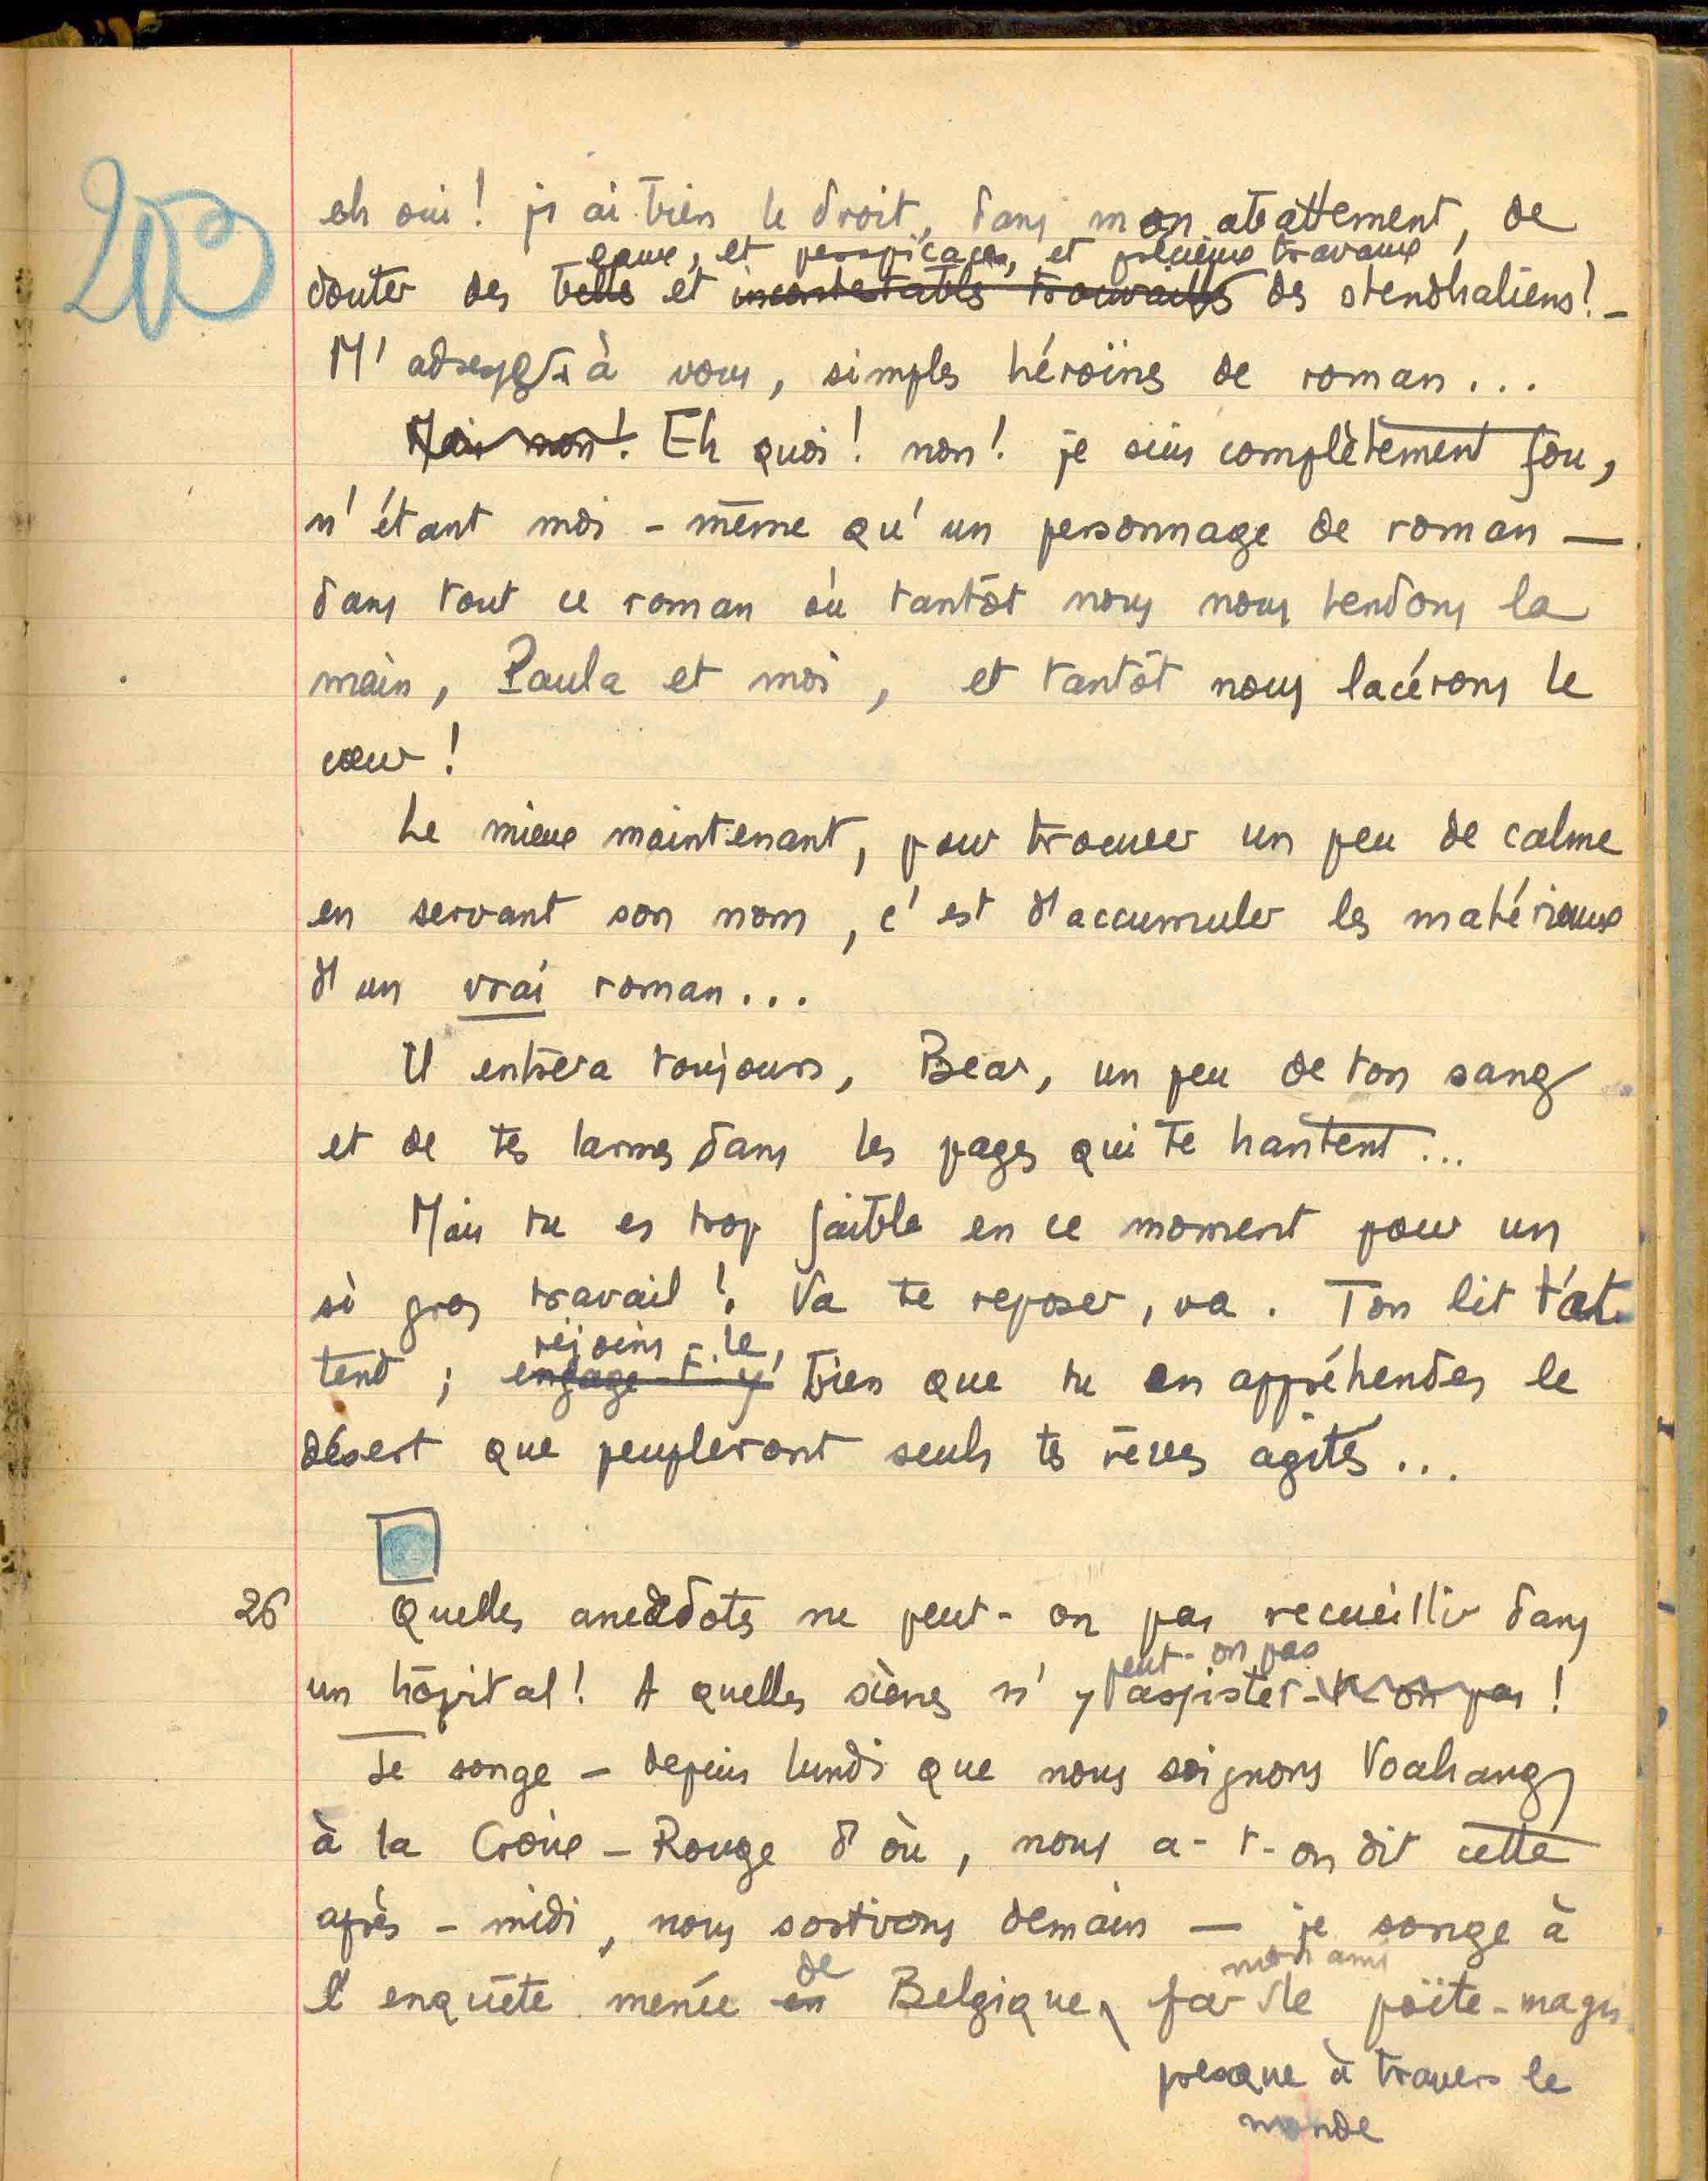 203
eh oui ! j'ai bien le droit, dans mon abattement, de
eaux, et perspicaces, et précieux travaux
douter des belles et incontestables trouvailles des stendhaliens ! –
M'adresser à vous, simples héroïnes de roman...
Mais non ! Eh quoi ! non ! je suis complètement fou,
n'étant moi-même qu'un personnage de roman —
dans tout ce roman où tantôt nous nous tendons la
main, Paula et moi, et tantôt nous lacérons le
cœur !
Le mieux maintenant, pour trouver un peu de calme
en servant son nom, c'est d'accumuler les matériaux
d'un vrai roman...
Il entrera toujours, Bear, un peu de ton sang
et de tes larmes dans les pages qui te hantent...
Mais tu es trop faible en ce moment pour un
si gros travail ! Va te reposer, va. Ton lit t'at-
rejoins-le,
tend ; engage-t-y bien que tu en appréhendes le
désert que peupleront seuls tes rêves agités...
26 Quelles anecdotes ne peut-on pas recueillir dans
peut-on pas
un hôpital ! A quelles scènes n'y assister-t-on pas !
Je songe – depuis lundi que nous soignons Voahangy
à la Croix-Rouge d'où, nous a-t-on dit cette
après-midi, nous sortirons demain — je songe à
de mon ami
l'enquête menée en Belgique par le poète-magis
presque à travers le
monde